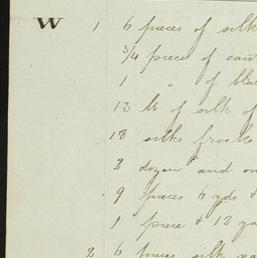 W 1 6 pieces of silk
3/4 piece of
1 " of
13 lb of silk of
18 silks
2 dozen and
9 pieces 6 yds &
1 piece & 12
2 6 pieces silk